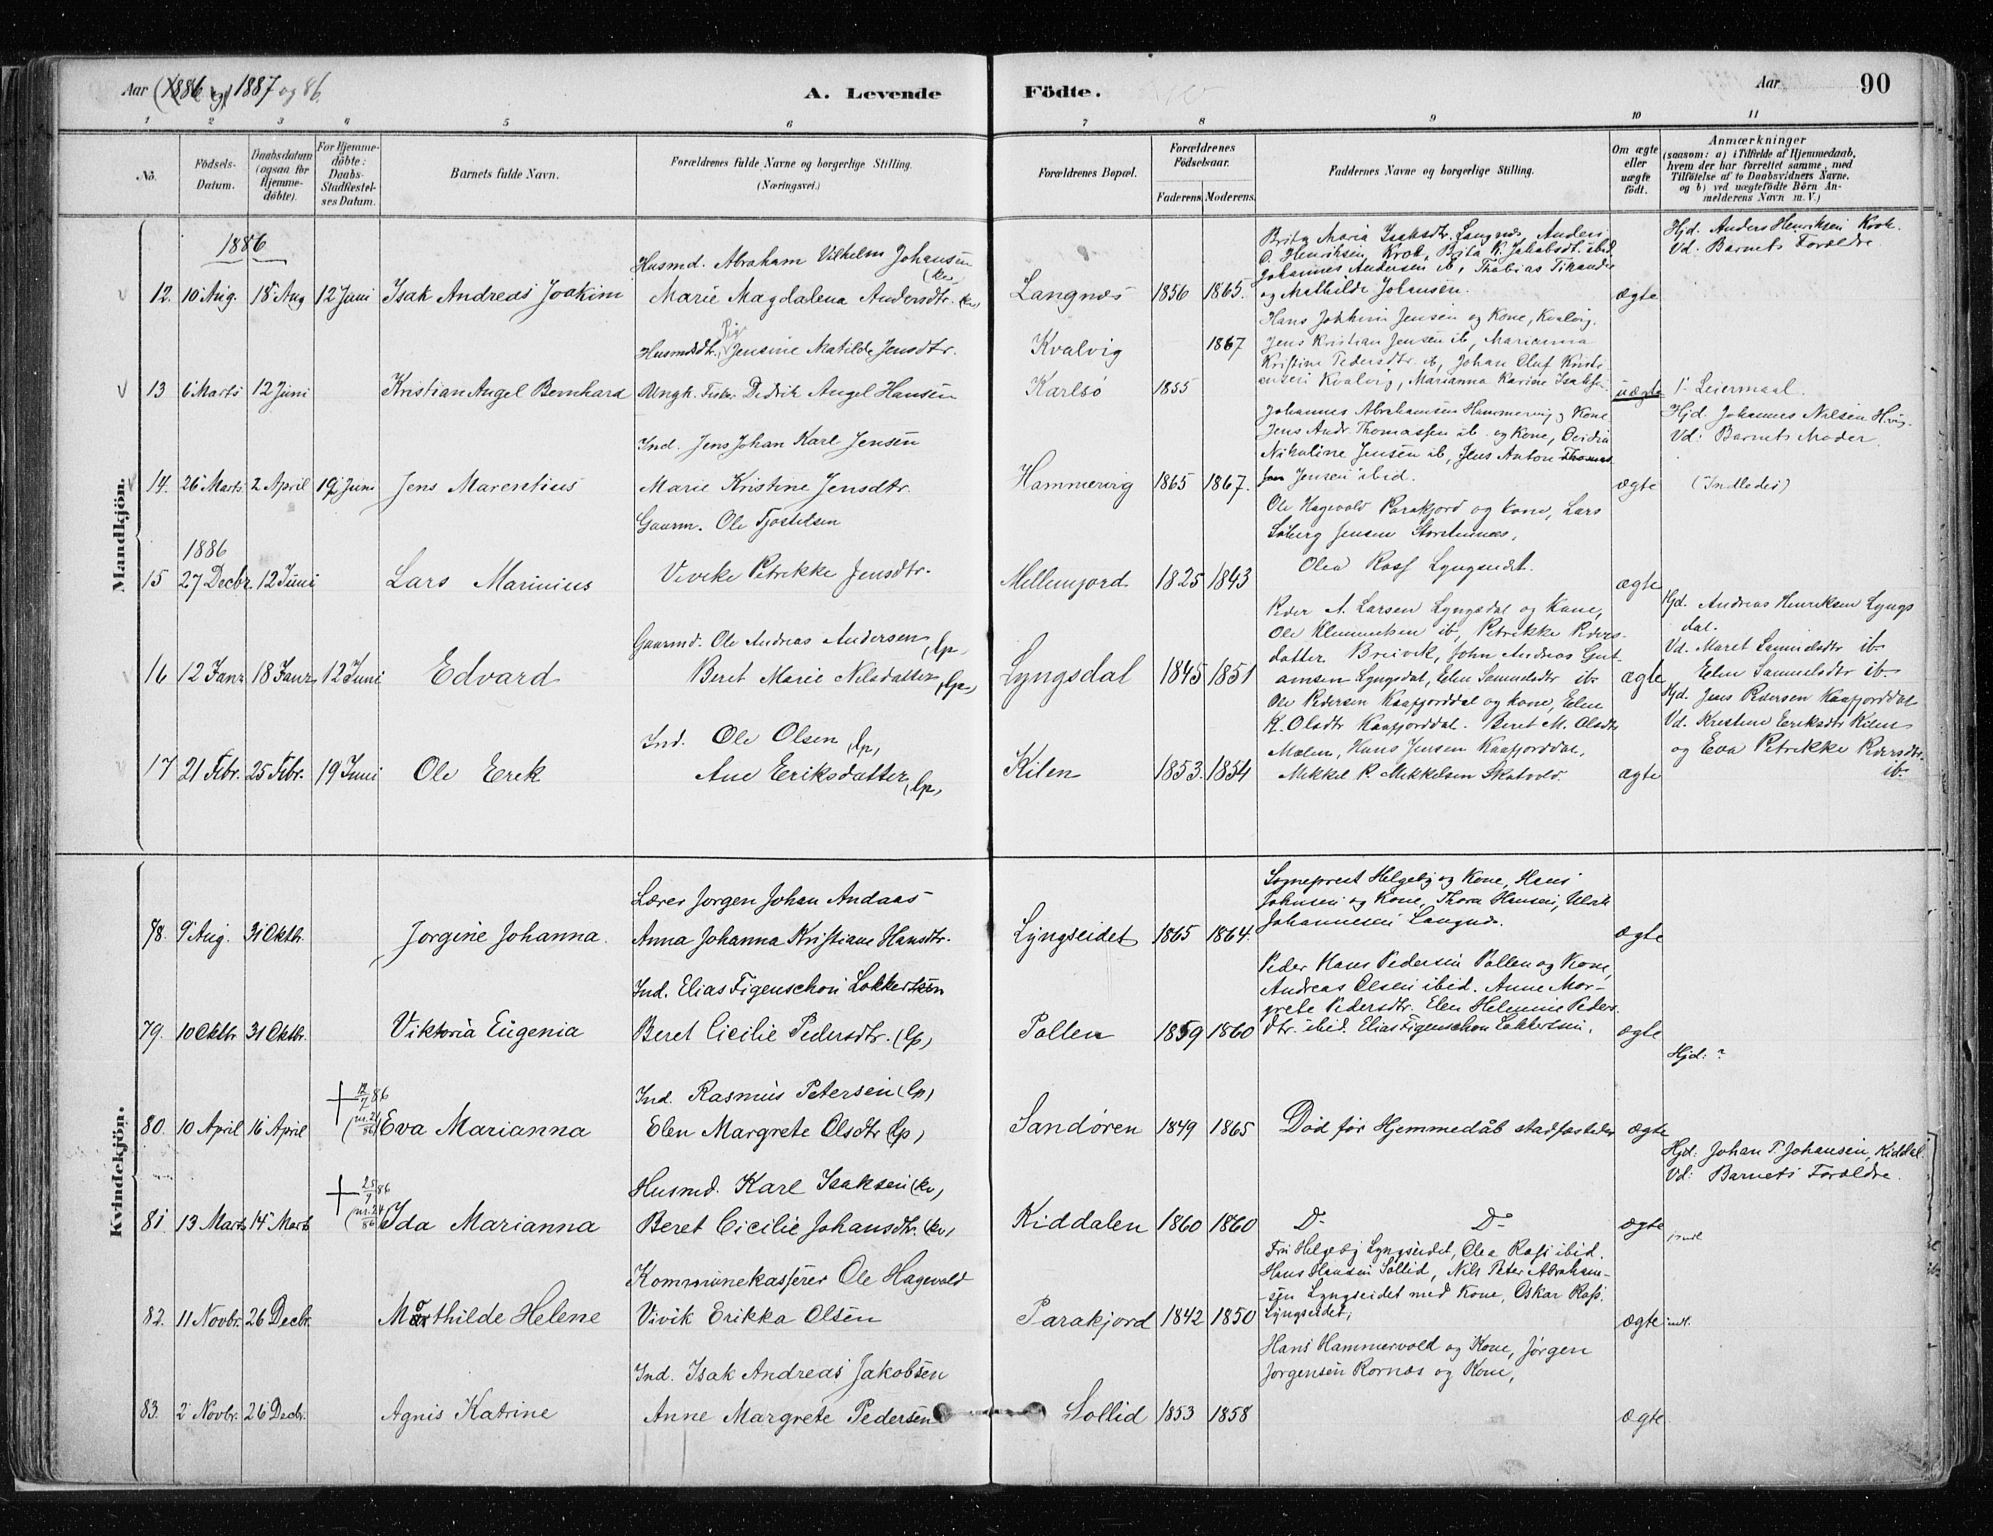 Aar (1886 og) 1887 og 86.
A. Levende Födte.
Aar 90
1 2 3 6 5 6 7 8 9 10 11
No.
Födsels-Datum.
Daabsdatum (ogsaa for Hjemme-döbte).
For Hjemme-döbte: Daabs-Stadfæstel-ses Datum.
Barnets fulde Navn.
Forældrenes fulde Navne og borgerlige Stilling. (Næringsvei.)
Forældrenes Bopæl.
Forældrenes Födselsaar.
Faderens Moderens.
Faddernes Navne og borgerlige Stilling.
Om ægte eller uægte födt.
Anmærkninger
(saasom: a) i Tilfælde af Hjemmedaab,
hvem der har forrettet samme, med
Tilföielse af to Daabsvidners Navne.
og b) ved uægtefödte Börn An-
melderens Navn m. V.)
Mandkjön.
1886
Husmd. Abraham Vilhelm Johansen (kv)
12. 10 Aug. 18 Aug 12 Juni Isak Andreas Joakim Marie Magdalena Andersdtr. (kv) Langnæs 1856 1865. ægte
Brita Maria Isaksdtr. Langnæs, Anders
O. Henriksen Krok, Brita K. Jakobsdt. ibid
Johannes Andersen ib, Thobias
og Mathilde Johansen.
Hjd. Anders Henriksen Krok.
Vd. Barnets Forældre.
Husmdsdtr. Pige Jensine Matilde Jensdtr. Kvalvig 1867
13 6 Marts 12 Juni Kristian Angel Bernhard Ungk. Fisker Didrik Angel Hansen Karlsö 1855 uægte
Hans Jensen og Kone, Kvalvig.
Jens Kristian Jensen ib, Marianna
Kristine Pedersdtr. ib, Johan Oluf Kristi
ensen Kvalvig, Marianna Karine
1ste Leiermaal.
Hjd. Johannes Nilsen
Vd: Barnets Moder.
Ind. Jens Johan Karl Jensen
14. 26 Marts 2 April 19 Juni Jens Marentius Marie Kristine Jensdtr. Hammervig 1865 1867. ægte (Indledes)
Johannes Abrahamsen Hammervig og Kone
Jens Andr. Thomassen ib. og Kone,
Nikoline Jensen ib, Jens Anton Thomas
sen Jensen ibid.
Gaarm. Ole Tjostelsen
1886
15 27 Decbr. 12 Juni Lars Marinius Vivike Petrikke Jensdtr. Mellemjord 1825 1843 ægte
Ole Hagevold Parakjord og kone, Lars
Søberg Jensen Storstennæs,
Olea Ross Lyngseidet.
Gaarmd. Ole Andreas Andersen (lp)
16 12 Janr. 18 Janr. 12 Juni Edvard Beret Marie Nilsdatter (lp) Lyngsdal 1845 1851 ægte
Peder A. Larsen Lyngsdal og Kone,
Ole Klemmetsen ib, Petrikke Peders-
datter Breivik, John Andreas Gut-
amsen Lyngsdal, Elen Samuelsdtr ib.
Hjd. Andreas Henriksen Lyngs
dal.
Vd. Maret Samuelsdtr ib.
Elen Samuelsdtr ib.
Ind. Ole Olsen (lp)
17 21 Febr. 25 Febr. 19 Juni Ole Erek Ane Eriksdatter (lp) Kilen 1853. 1854 ægte
Ole Pedersen Kaafjorddal og kone, Elen
K. Olsdtr Kaafjorddal. Beret M. Olsdtr
Mælen, Hans Jensen Kaafjorddal,
Mikkel P. Mikkelsen Skatvold.
Hjd. Jens Pedersen Kaafjorddal
Vd. Kristine Eriksdtr Kilen
og Eva Petrikke Pedersdtr.
ib.
Kvindekjön.
Lærer Jørgen Johan Andaas
78. 9 Aug. 31 Oktb. Jørgine Johanna. Anna Johanna Kristiane Hansdtr. Lyngseidet 1865 1864. ægte
Sognepræst Helgeby og Kone, Hans
Johnsen og Kone, Thora Hansen, Ulrik
Johannesen Langnæs.
Ind. Elias Figenschou Lokkertsen
79. 10 Oktbr. 31 Oktbr. Viktoria Eugenia Beret Cicilie Pedersdtr. (lp) Pollen 1859 1860 ægte
Peder Hans Pedersen Pollen og Kone,
Andreas Olsen ibid. Anne Mar-
grete Pedersdtr. Elen Helmine Peders
dtr. ibid. Elias Figenschou Lokkertsen.
Hjd: ?
Ind. Rasmus Petersen (lp)
80. 10 April 16 April † 12/7 86 (nr. 21/86) Eva Marianna Elen Margrete Olsdtr (lp) Sandøren 1849 1865 Død før Hjemmedåb stadfæstedes ægte
Husmd. Karl Isaksen (kv)
81 13 Marts 14 Marts † 25/7 86 (nr. 24/86) Ida Marianna Beret Cicilie Johansdtr. (kv) Kiddalen 1860 1860 D- D- ægte
Hjd: Johan P. Johansen, Kiddal.
Vd: Barnets Forældre.
Kommunekasserer Ole Hagevold
82. 11 Novbr. 26 Decbr. Mathilde Helene Vivik Erikka Olsen Parakjord 1842 1850 ægte indl.
Fru Helgeby Lyngseidet, Olea Ross ibid.
Hans Hansen Sollid, Nils Peter Abraham-
sen Lyngseidet med Kone, Oskar Ross.
Lyngseidet,
Ind. Isak Andreas Jakobsen
83. 2 Novbr. 26 Decbr. Agnis Katrine Anne Margrete Pedersen Sollid 1853 1858 ægte
Hans Hammervold og Kone, Jørgen
Jørgensen Rornæs og Kone,